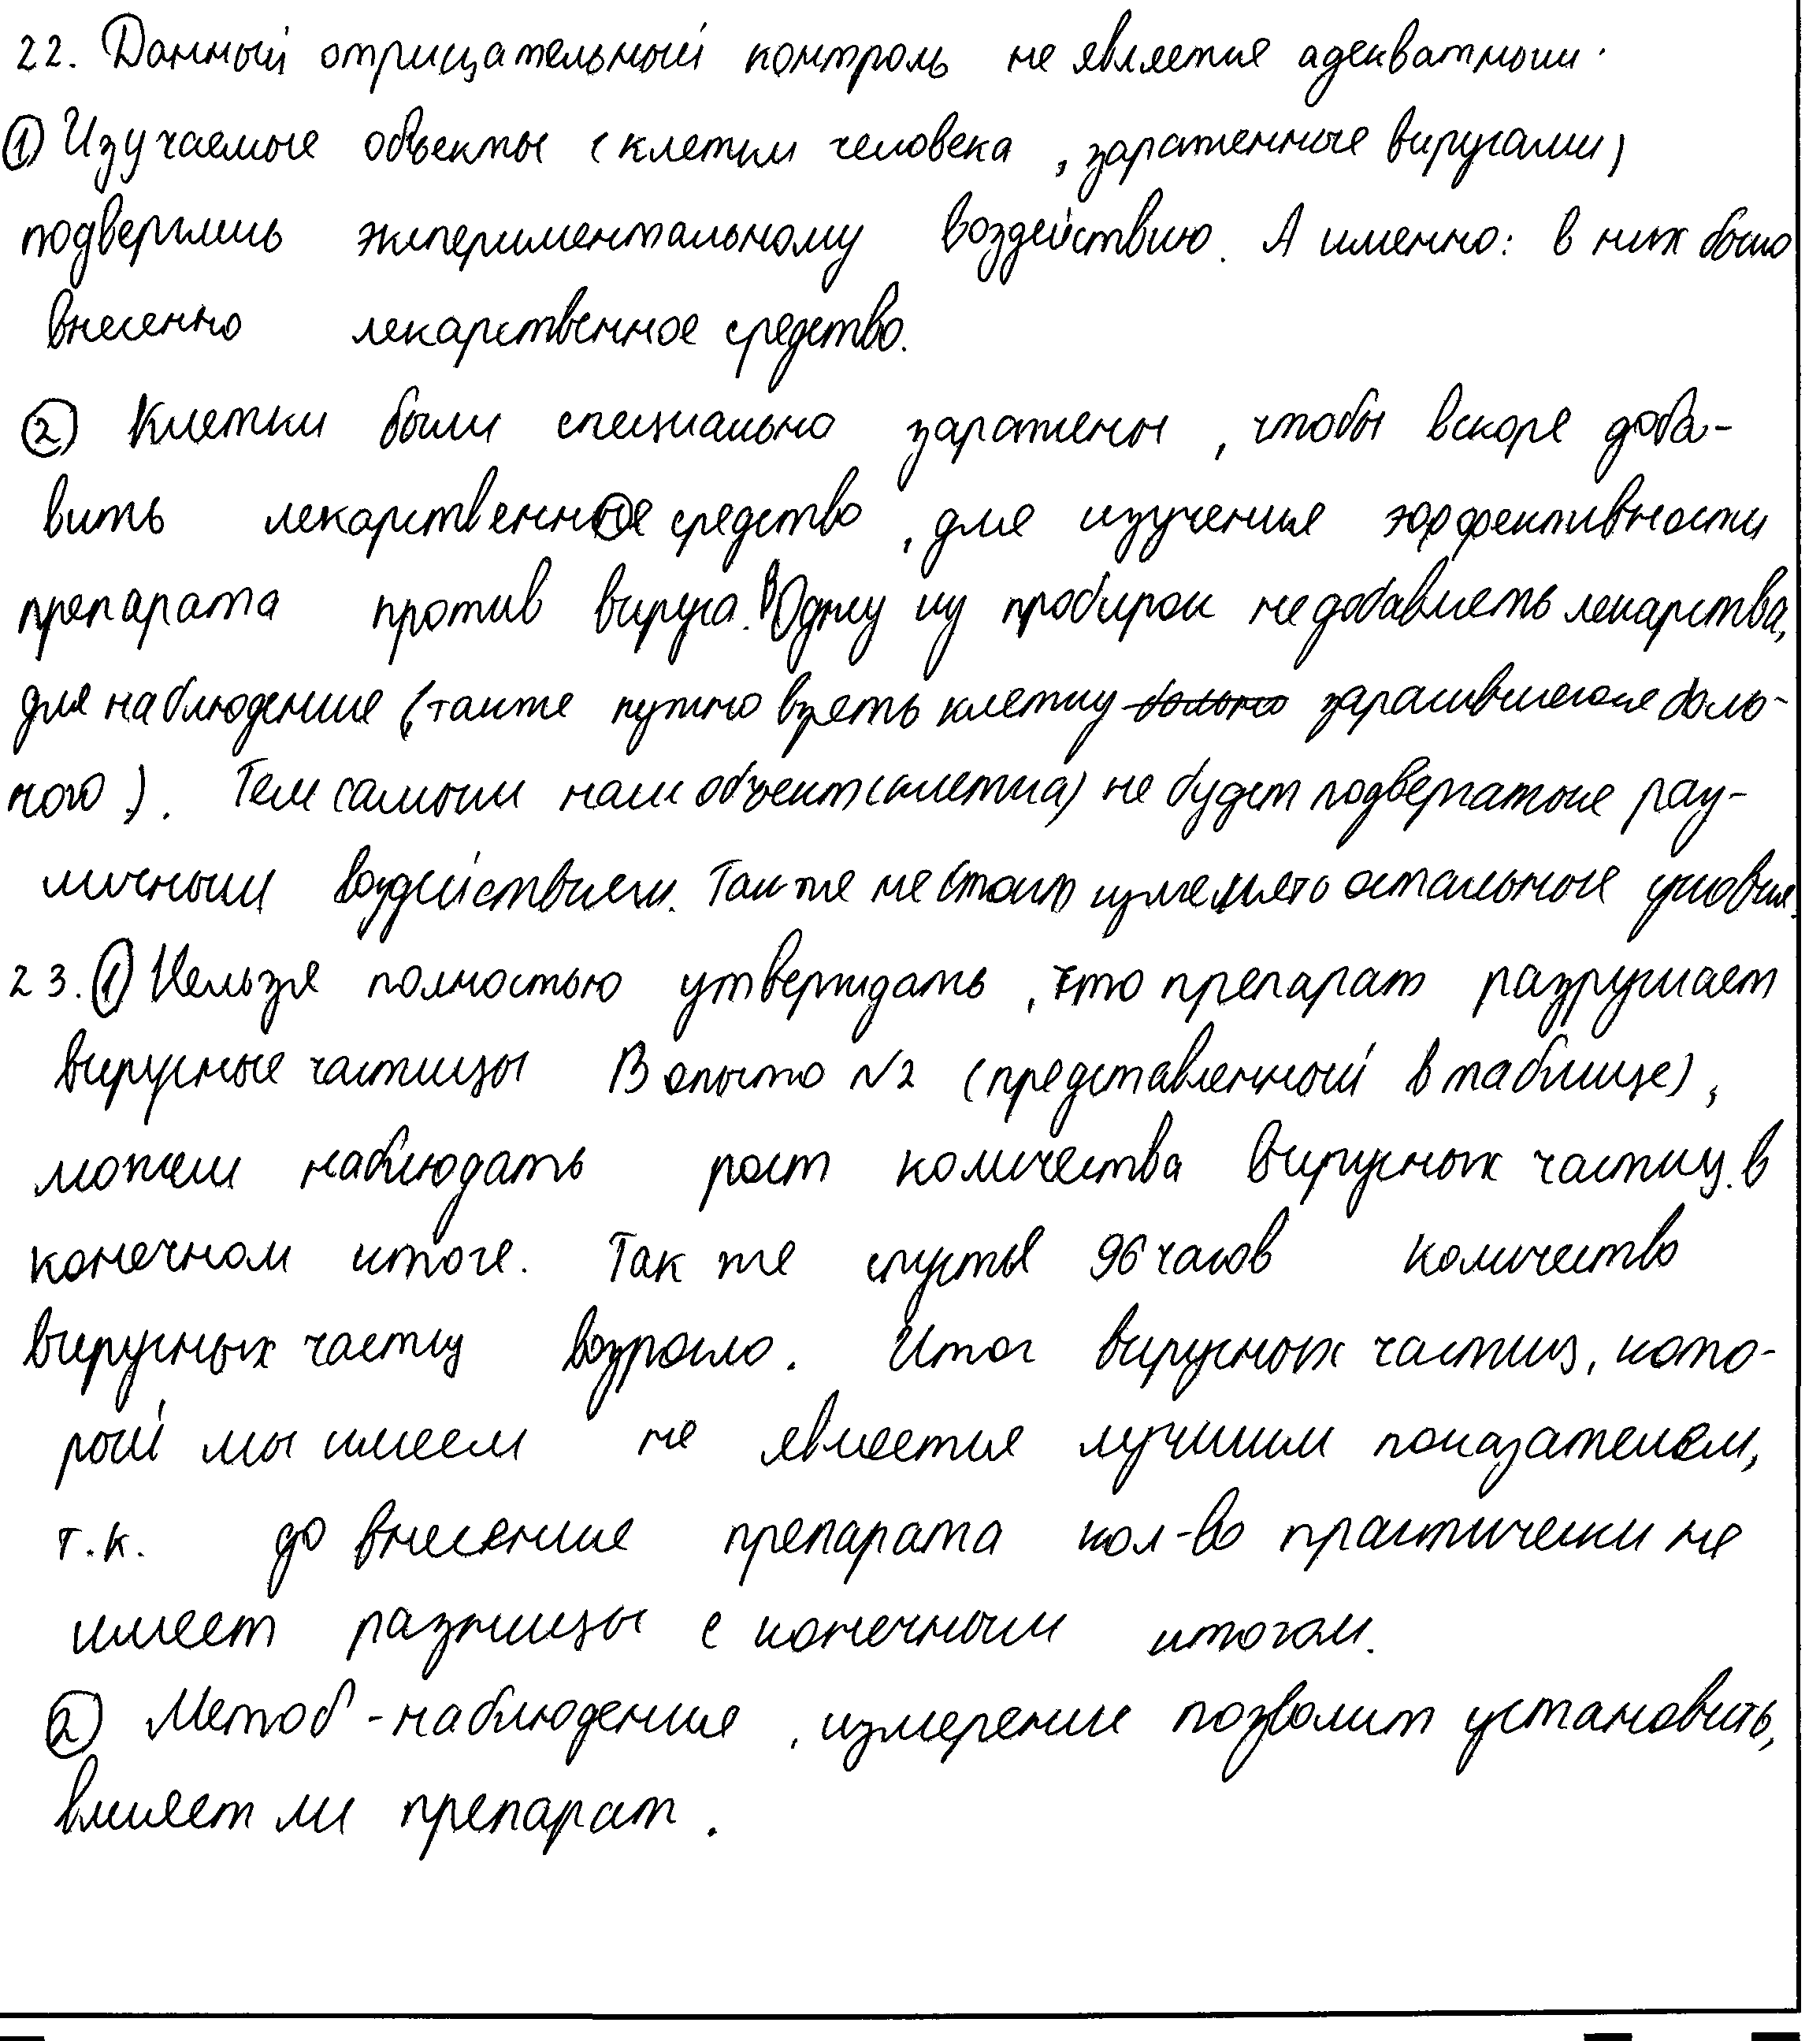 22. Данный отрицательный контроль не является адекватным.
① Изучаемые объекты (клетки человека, зараженные вирусами)
подверглись экспериментальному воздействию. А именно: в них было
внесенно лекарственное средство.
② Клетки были специально заражены, чтобы вскоре доба-
вить лекарственное средство, для изучения эффективности
препарата против вируса. В Одну из пробирок не добавлять лекарства,
для наблюдения (также нужно взять клетку заразившегося боль-
ного). Тем самым наш объект (клетка) не будет подвергаться раз-
личным воздействием. Также не стоит изменять остальные условия.
23. ① Нельзя полностью утверждать, что препарат разрушает
вирусные частицы В опыто №2 (представленный в таблице),
можем наблюдать рост количества вирусных частиц в
конечном итоге. Так же спустя 96 часов количество
вирусных частиц возросло. Итог вирусных частиц, кото-
рый мы имеем не является лучшим показателем,
т.к. до внесения препарата кол-во практически не
имеет разницы с конечным итогом.
② Метод - наблюдения, измерения позволит установить,
влияет ли препарат.